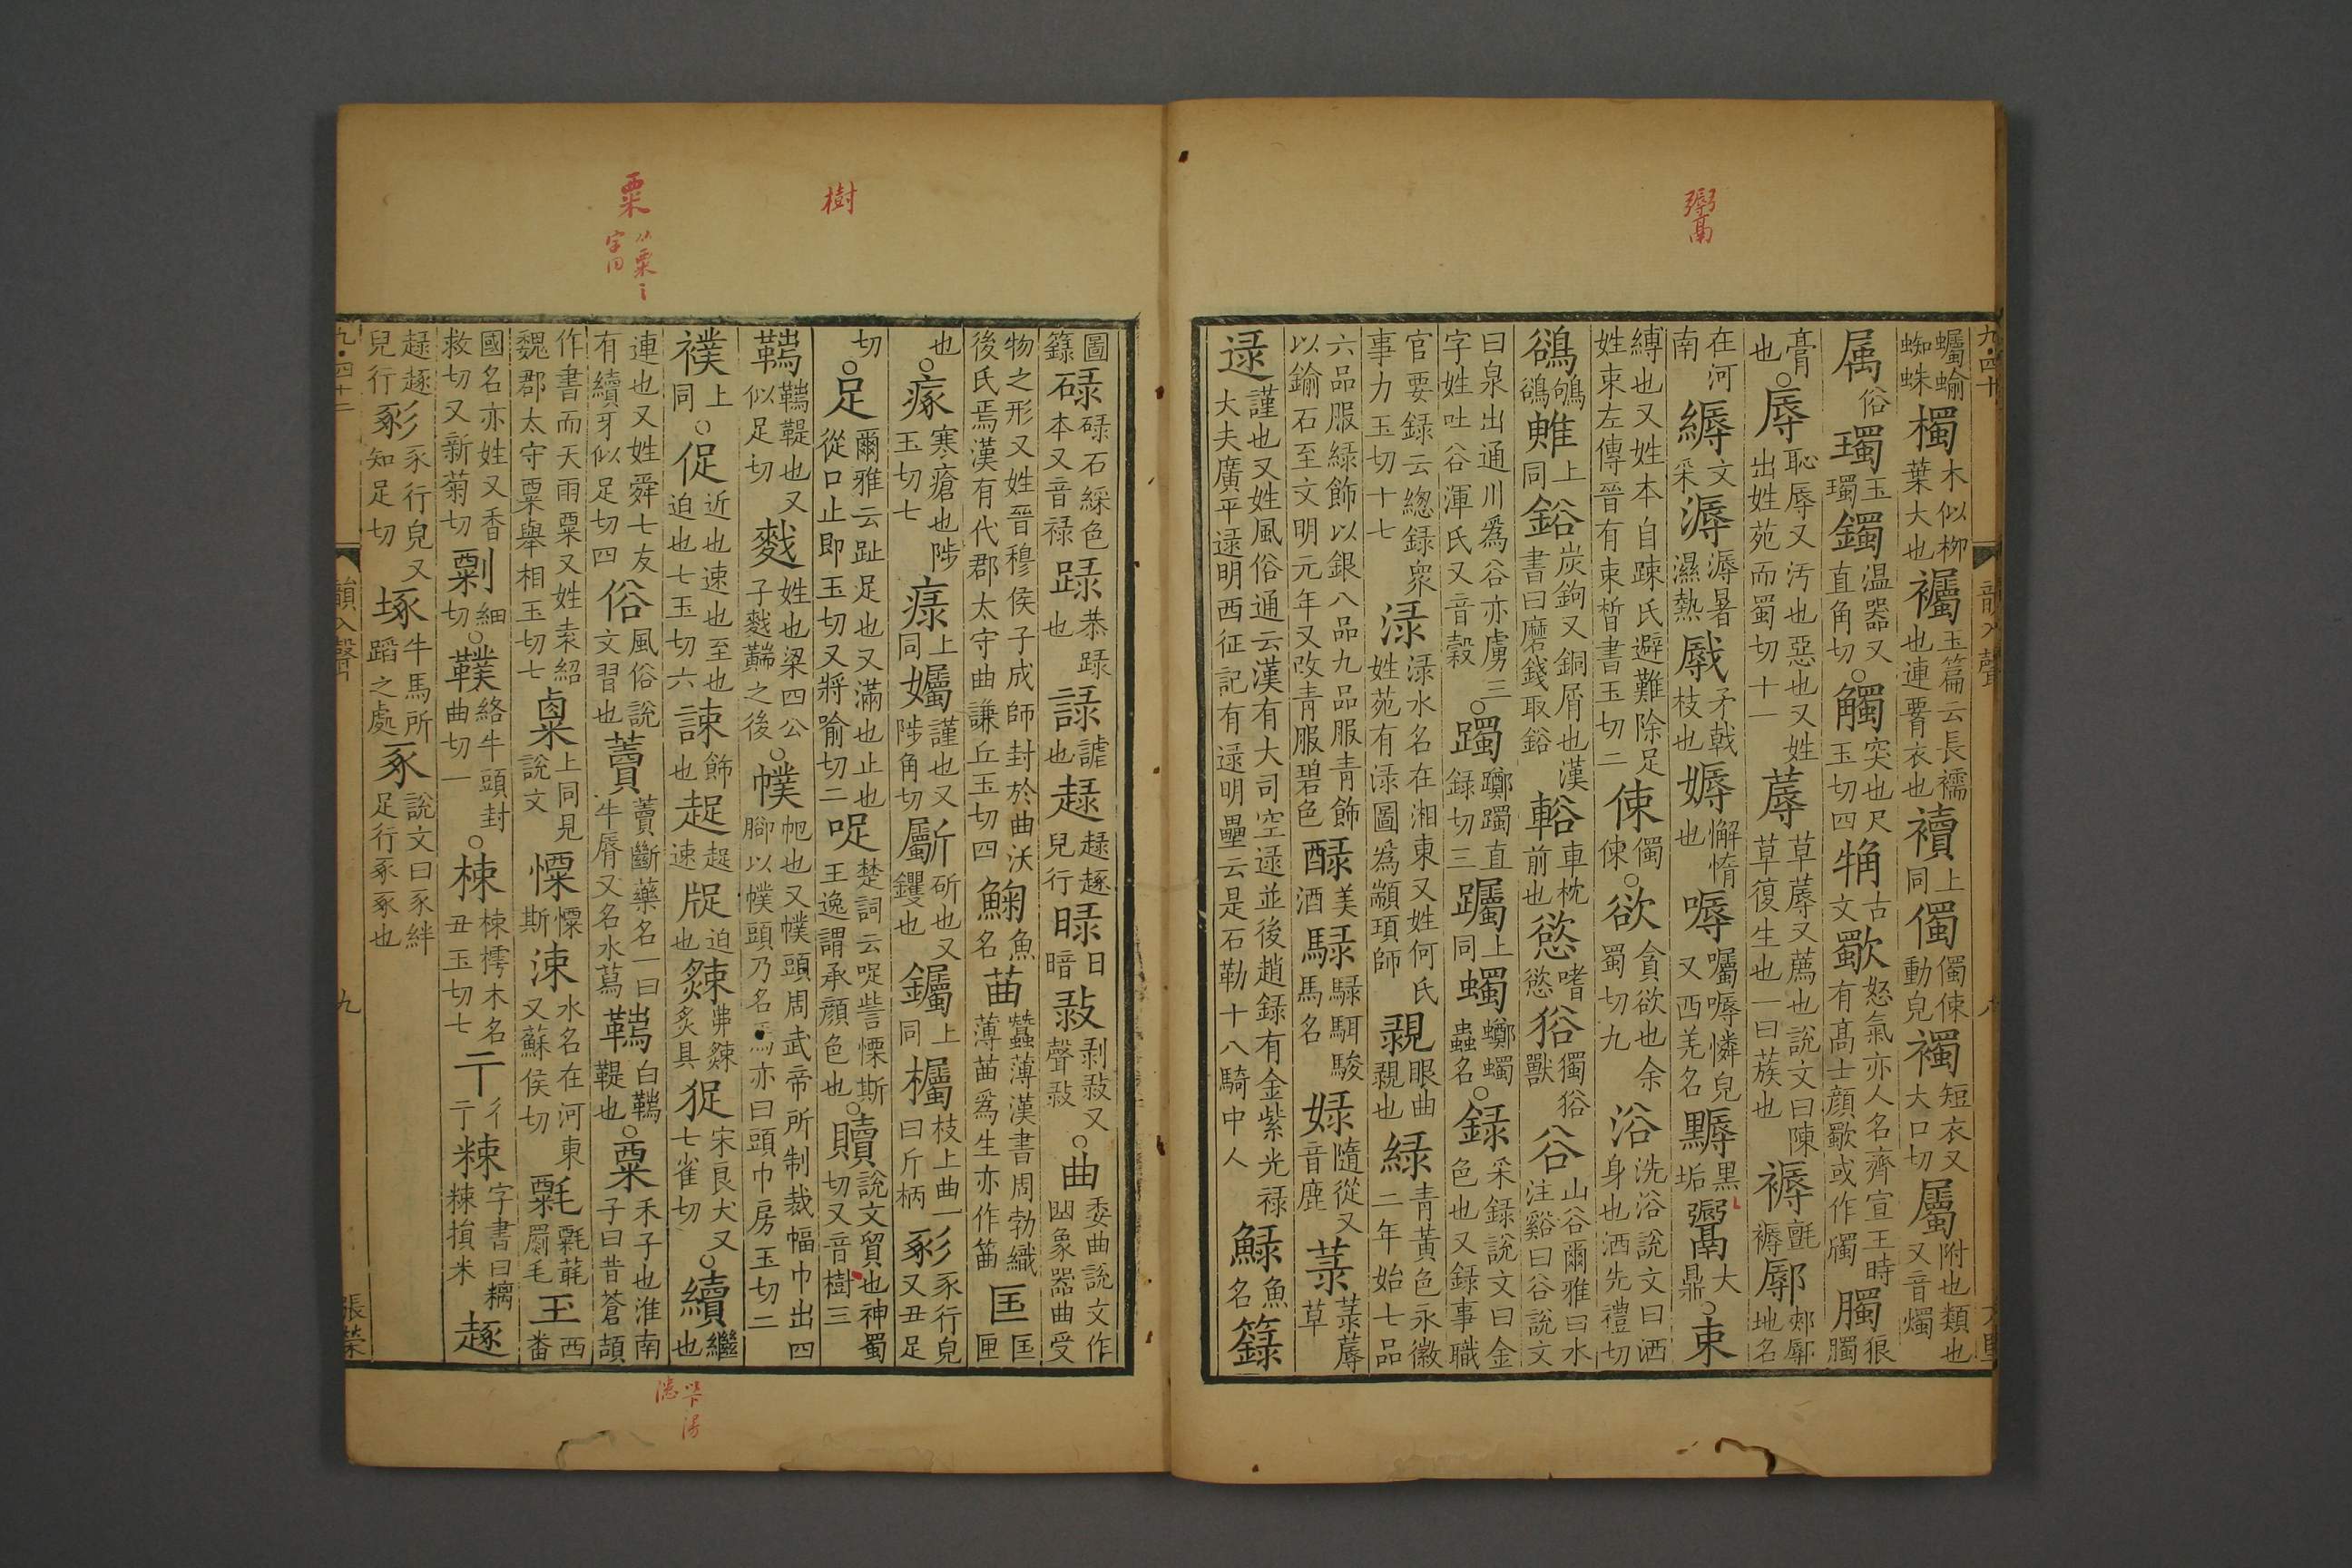 蠾蝓蜘蛛 欘木似柳葉大也 襡玉篇云長襦也連𦝫衣也 襩上同 㒔㒔倲動皃 襡短衣又大口切 屬附也類也又音燭
属俗 瓎玉瓎 鐲温器又直角切○觸突也尺玉切四 㧓古文 歜怒氣亦人名齊宣王時有髙士顔歜或作𧤗 臅狼臅
膏也○辱恥辱又汚也惡也又姓出姓苑而蜀切十一 蓐草蓐又薦也說文曰陳草復生也一曰蔟也 褥氈褥 鄏郟鄏地名
在河南 縟文采 溽溽暑濕熱 㦺矛戟枝也 媷懈惰也 嗕囑嗕憐皃又西羌名 黣黑垢 䰞大鼎○束
縛也又姓本自踈氏避難除足姓束左傳晉有束晳書玉切二 倲㒔倲○欲貪欲也余蜀切九 浴洗浴說文曰洒身也洒先禮切
鵒鴝鵒 䳑上同 鋊炭鉤又銅屑也漢書曰磨錢取鋊 輍車枕前也 慾嗜慾 㺲獨㺲獸 谷山谷爾雅曰水注谿曰谷說文
曰泉出通川爲谷亦虜三字姓吐谷渾氏又音穀○躅躑躅直録切三 躅上同 蠋蠰蠋蟲名○録采録說文曰金色也又録事職
官要録云緫録衆事力玉切十七 淥淥水名在湘東又姓何氏姓苑有淥圖爲顓頊師 覨眼曲覨也 緑青黃色永徽二年始七品
六品服緑飾以銀八品九品服青飾以鍮石至文明元年又改青服服碧色 醁美酒 騄騄駬駿馬名 娽隨從又音鹿 菉菉蓐草
逯謹也又姓風俗通云漢有大司空逯並後趙録有金紫光禄大夫廣平逯明西征記有逯明壘云是石勒十八騎中人 𩷐魚名 籙
圖籙 碌碌石綵色本又音禄 趢恭趢也 䚄謯也 趢趢趗皃行 睩日暗 㪖剥㪖又聲㪖○曲委曲說文作凷象器曲受
物之形又姓晉穆侯子成師封於曲沃後氏焉漢有代郡太守曲謙丘玉切四 䱡魚名 苖蠶薄漢書周勃織薄苖爲生亦作笛 匡匡匣
也○瘃寒瘡也陟玉切七 㾄上同 孎謹也又陟角切 斸斫也又钁也 钃上同 欘枝上曲一曰斤柄 豖豕行皃又丑足
切○足爾雅云趾足也又滿也止也從口止即玉切又將喻切二 哫楚詞云哫訾慄斯王逸謂承顔色也○贖說文貿也神蜀切又音樹三
韣韣鞮也又似足切 㱿姓也梁四公子㱿䵎之後○幞帊也又幞頭周武帝所制裁幅巾出四脚以幞頭乃名焉亦曰頭巾房玉切二
襆上同○促近也速也至也迫也七玉切六 諫飾也 起起速 㾛迫也 𤎱弗𤎱炙具 捉宋良犬又七雀切○續繼也
連也又姓舜七友有續牙似足切四 俗風俗說文習也 藚藚斷藥名一曰牛脣又名水蕮 韣白韣鞮也○粟禾子也淮南子曰昔蒼頡
作書而天雨粟又姓袁紹魏郡太守粟舉相玉切七 𥻆上同見說文 慄慄斯 涑水名在河東又蘇侯切 㲡㲡毦罽毛 玊西番
國名亦姓又香救切又新菊切 剽細切○䪁絡牛頭封曲切一○楝楝樗木名丑玉切七 亍彳亍 𥻘字書曰糲𥻘㨋米 趗
趢趗皃行 豖豕行皃又知足切 㙇牛馬所蹈之處 豖說文曰豕絆足行豖豖也
九
張榮
粟
樹